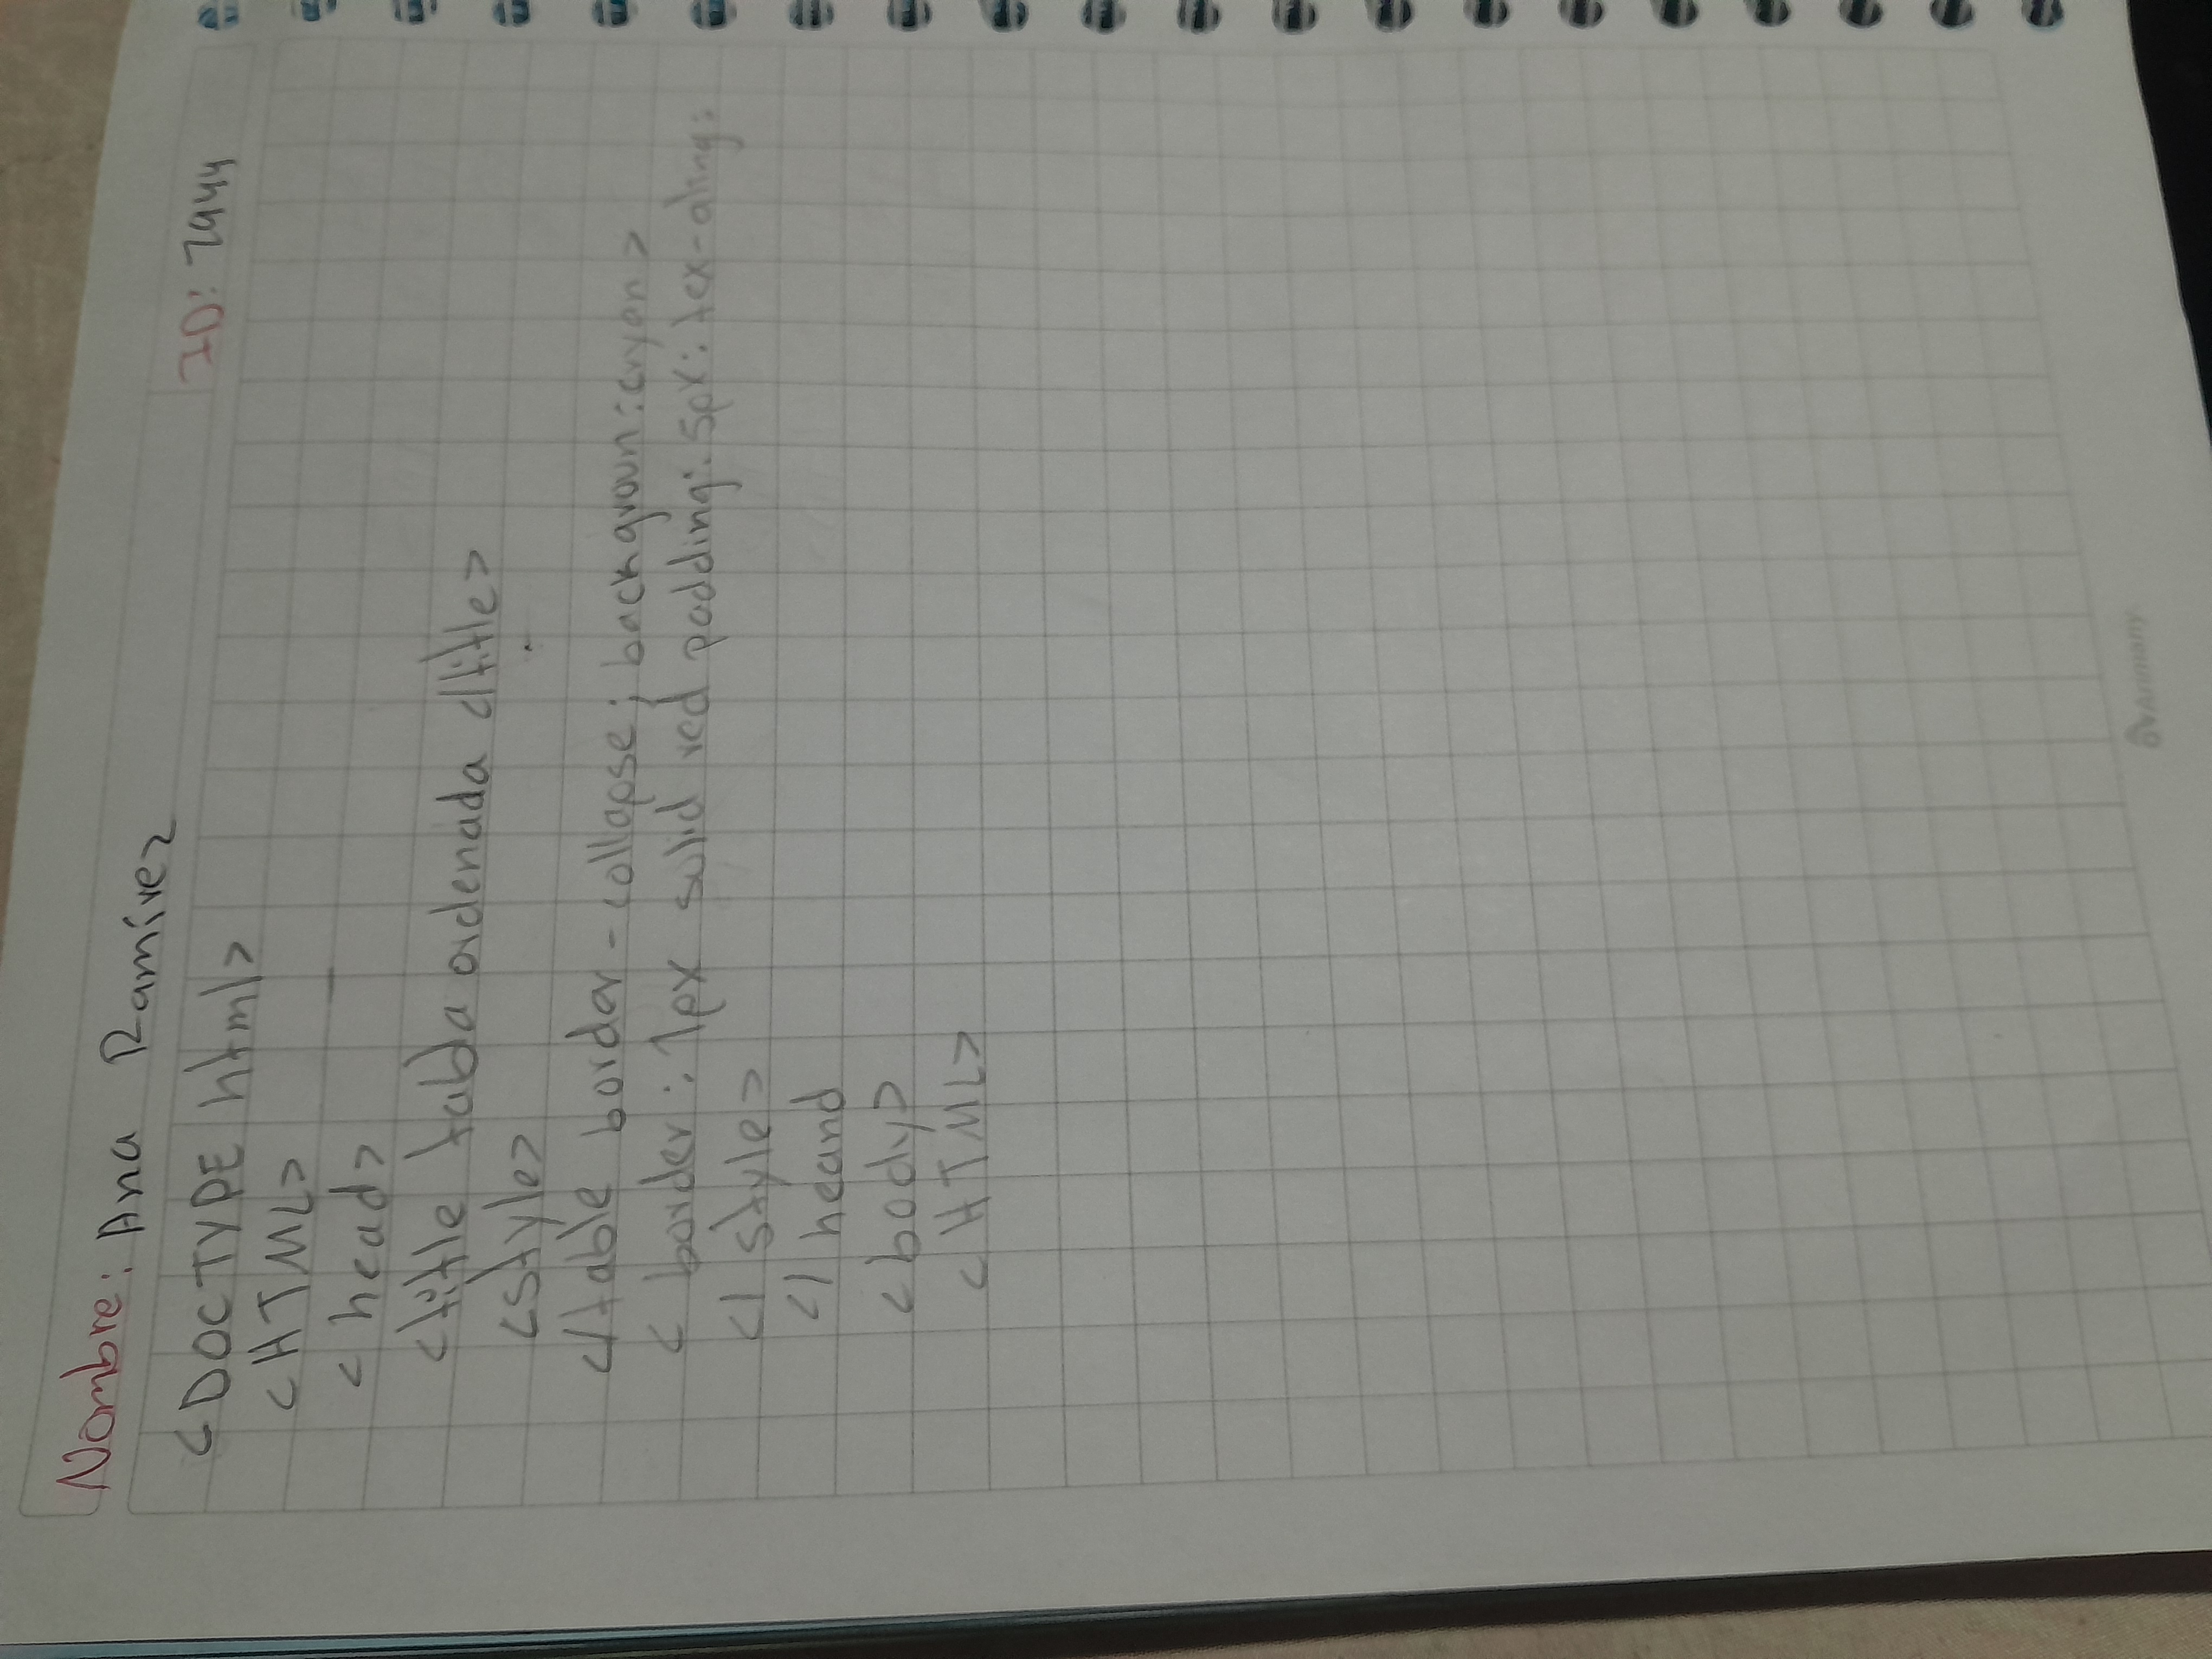 Nombre: Ana Ramírez
ID: 7944
<DOCTYPE html>
<HTML>
<head>
<title tabda ordenada </title>
<style>
</table border-collapse; backgroun:cryan>
< border: 1px solid red padding: 5px: tex-aling:
</style>
</ heand
<body>
<HTML>